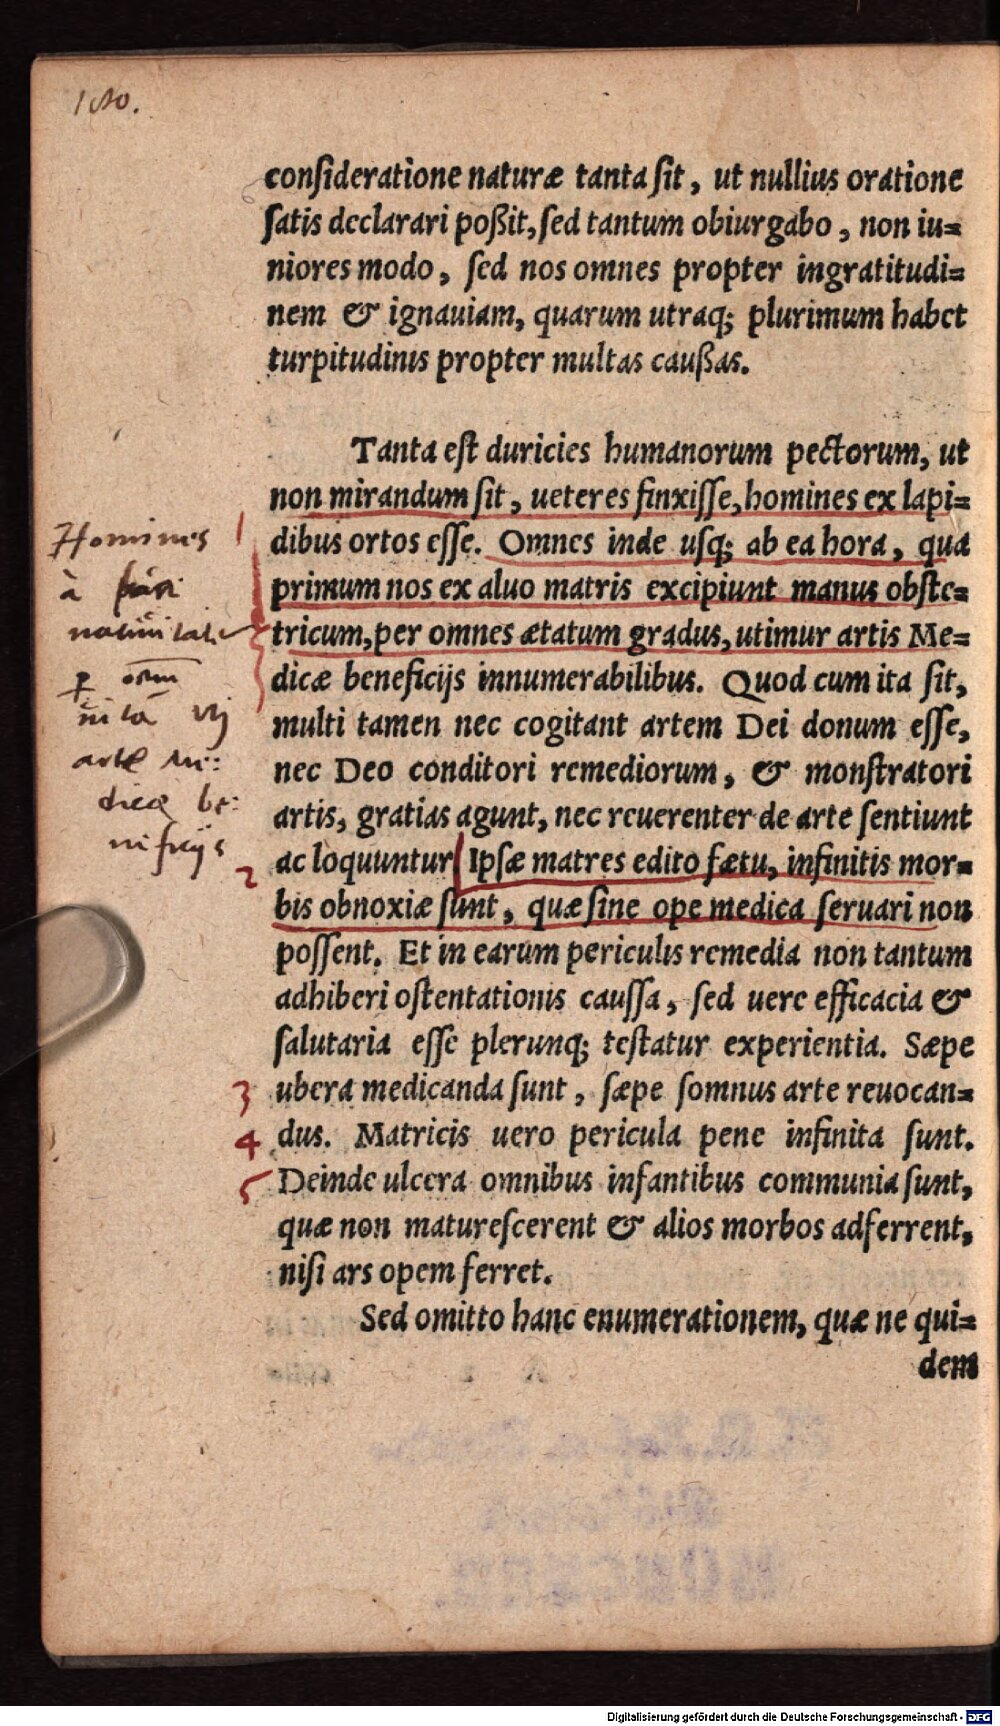 consideratione naturæ tanta sit, ut nullius oratione
satis declarari poßit, sed tantum obiurgabo, non iu=
niores modo, sed nos omnes propter ingratitudi=
nem & ignauiam, quarum utraq; plurimum habet
turpitudinis propter multas caußas.
Tanta est duricies humanorum pectorum, ut
non mirandum sit, ueteres finxisse, homines ex lapi=
dibus ortos esse. Omnes inde usq; ab ea hora, qua
primum nos ex aluo matris excipiunt manus obste=
tricum, per omnes ætatum gradus, utimur artis Me=
dicæ beneficijs innumerabilibus. Quod cum ita sit,
multi tamen nec cogitant artem Dei donum esse,
nec Deo conditori remediorum, & monstratori
artis, gratias agunt, nec reuerenter de arte sentiunt
ac loquuntur Ipsæ matres edito fætu, infinitis mor=
bis obnoxiæ sunt, quæ sine ope medica seruari non
possent. Et in earum periculis remedia non tantum
adhiberi ostentationis caussa, sed uere efficacia &
salutaria esse plerunq; testatur experientia. Sæpe
ubera medicanda sunt, sæpe somnus arte reuocan=
dus. Matricis uero pericula pene infinita sunt.
Deinde ulcera omnibus infantibus communia sunt,
quæ non maturescerent & alios morbos adferrent,
nisi ars opem ferret.
Sed omitto hanc enumerationem, quæ ne qui=
dem
Homines
à
p
arte me:
dicæ be:
nificijs
1
2
3
4
5
Digitalisierung gefördert durch die Deutsche Forschungsgemeinschaft - DFG